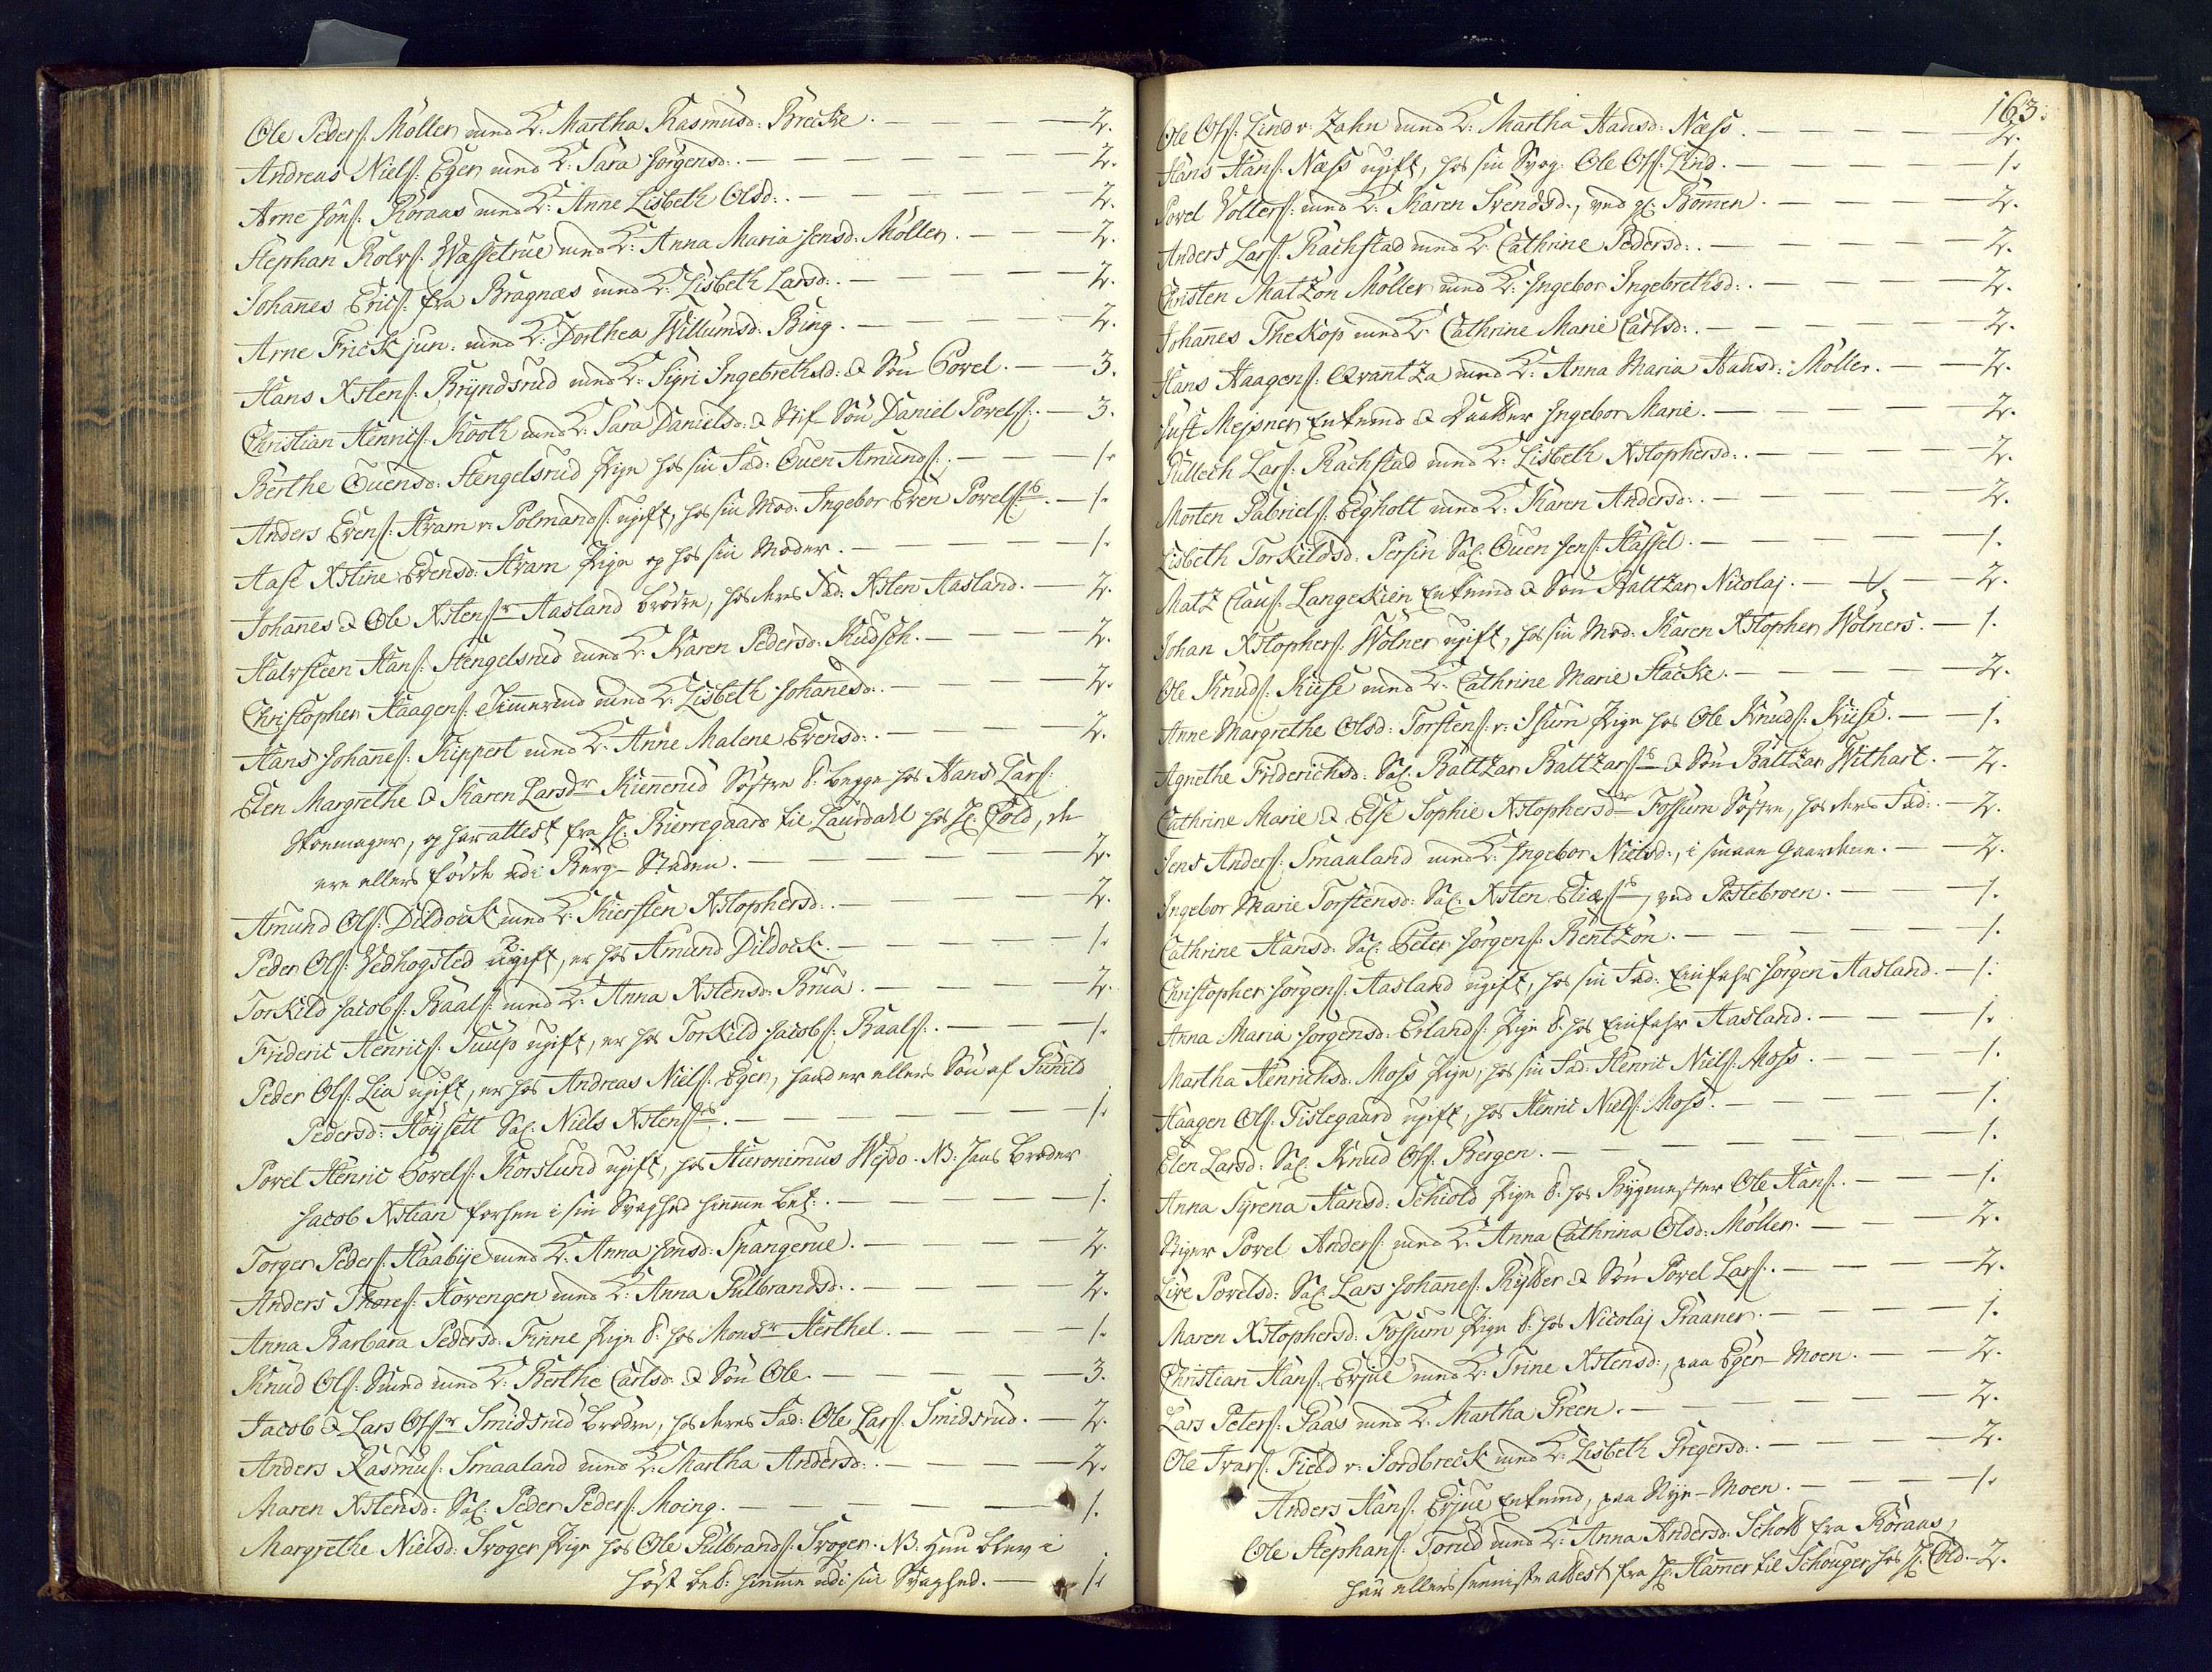 Ole Peders: Möller med K: Martha Rasmusd: Brecke. — 2.
Andreas Niels: Eger med K: Sara Jörgensd: — 2.
Arne Jöns: Röraas med K: Anne Lisbeth Olsd: — 2.
Stephan Rolvs: Wassetrue med K: Anna Maria Jensd: Möller. — 2.
Johanes Erics: fra Bragnæs med K: Lisbeth Larsd: — 2.
Arne Frick jun: med K: Dorthea Willumsd: Bing. — 2.
Hans Xstens: Bryndsrud med K: Sigri Ingebrethsd: & Sön Povel. — 3.
Christian Henrics: Kooth med K: Sara Danielsd: & Stif-Sön Daniel Povels: — 3.
Berthe Ouensd: Stengelsrud Pige hos sin Fad: Ouen Amunds: — 1.
Anders Evens: Hram v: Polmands: ugift, hos sin Mod: Ingebor Even Povels: — 1.
Aase Xstine Evensd: Hram Pige og hos sin Moder. — 1.
Johanes & Ole Xstens: Aasland brödre, hos deres Fad: Xsten Aasland. — 2.
Halvsteen Hans: Stengelsrud med K: Karen Pedersd: Kudsch. — 2.
Christopher Haagens: Timermd med K: Lisbeth Johanesd: — 2.
Hans Johanes: Kippert med K: Anne Malene Evensd: — 2.
Elen Margrethe & Karen Larsdr Kienerud Söstre t: begge hos Hans Lars:
Skoemager, og har attest fra H: Bierregaard til Laurdahl hos H: Cold, de
ere ellers födde udi Berg-Staden. — 2.
Amund Ols: Dildock med K: Kiersten Xstophersd: — 2.
Peder Ols: Vedhogsted ugift, er hos Amund Dildock. — 1.
Torkild Jacobs: Baals: med K: Anna Xstensd: Brua. — 2.
Frideric Henrics: Tuus ugift, er hos Torkild Jacobs: Baals: — 1.
Peder Ols: Lia ugift, er hos Andreas Niels: Eger, hand er ellers Sön af Gunild
Pedersd: Höysett Sal: Niels Xstens: — 1.
Povel Henric Povels: Korslund ugift, hos Hieronimus Weido. NB: hans broder
Jacob Xstian forhen i sin Svaghed hieme bet: — 1.
Torger Peders: Haabye med K: Anna Jonsd: Spangerue. — 2.
Anders Thores: Hovengen med K: Anna Gulbrandsd: — 2.
Anna Barbara Pedersd: Finne Pige t: hos Monsr Herthel. — 1.
Knud Ols: Smed med K: Berthe Carlsd: & Sön Ole. — 3.
Jacob & Lars Ols: Smidsrud brödre, hos deres Fad: Ole Lars: Smidsrud. — 2.
Anders Rasmus: Smaaland med K: Martha Andersd: — 2.
Maren Xstensd: Sal: Peder Peders: Moing. — 1.
Margrethe Nielsd: Svoger Pige hos Ole Gulbrands: Svoger. NB: Hun blev i
höst bet: hieme udi sin Svaghed. — 1.
163.
Ole Ols: Lind v: Zahn med K: Martha Hansd: Næss. — 2.
Hans Hans: Næss ugift, hos sin Svog: Ole Ols: Lind. — 1.
Povel Volters: med K: Karen Svendsd:, ved gl: Bommen. — 2.
Anders Lars: Rachstad med K: Cathrine Pedersd: — 2.
Christen Matzon Möller med K: Ingebor Ingebrethsd: — 2.
Johanes Theskop med K: Cathrine Marie Carlsd: — 2.
Hans Haagens: Qvantza med K: Anna Maria Hansd: Möller. — 2.
Just Mejsner Enkemd & Daatter Ingebor Marie. — 2.
Gullech Lars: Rachstad med K: Lisbeth Xstophersd: — 2.
Morten Gabriels: Egholt med K: Karen Andersd: — 2.
Lisbeth Torkildsd: Persin Sal: Ouen Jens: Hassel. — 1.
Matz Claus: Langeskien Enkemd & Sön Baltzar Nicolaj. — 2.
Johan Xstophers: Wölner ugift, hos sin Mod: Karen Xstopher Wölners. — 1.
Ole Knuds: Kiise med K: Cathrine Marie Hacke. — 2.
Anne Margrethe Olsd: Torstens: v: Isum Pige hos Ole Knuds: Kiise. — 1.
Agnethe Friderichsd: Sal: Baltzar Baltzars: & Sön Baltzar Withart. — 2.
Cathrine Marie & Else Sophie Xstophersdr Fossum Söstre, hos deres Fad: — 2.
Jens Anders: Smaaland med K: Ingebor Nielsd:, i smaae Gaardene. — 2.
Ingebor Marie Torstensd: Sal: Xsten Elias:, ved Postebroen. — 1.
Cathrine Hansd: Sal: Peter Jörgens: Bentzon. — 1.
Christopher Jörgens: Aasland ugift, hos sin Fad: Einfahr Jörgen Aasland. — 1.
Anna Maria Jörgensd: Erlands: Pige t: hos Einfahr Aasland. — 1.
Martha Henrichsd: Moss Pige, hos sin Fad: Henric Niels: Moss. — 1.
Haagen Ols: Fislegaard ugift, hos Henric Niels: Moss. — 1.
Elen Larsd: Sal: Knud Ols: Bergen. — 1.
Anna Syrena Hansd: Schiold Pige t: hos Bygmester Ole Hans: — 1.
Stiger Povel Anders: med K: Anna Cathrina Olsd: Möller. — 2.
Live Povelsd: Sal: Lars Johanes: Rytter & Sön Povel Lars: — 2.
Maren Xstophersd: Fossum Pige t: hos Nicolaj Praaner. — 1.
Christian Hans: Erjue med K: Trine Xstensd:, paa Eger-Moen. — 2.
Lars Peters: Paas med K: Martha Green. — 2.
Ole Ivars: Field v: Jordbreck med K: Lisbeth Gregersd: — 2.
Anders Hans: Erjue Enkemd, paa Nye-Moen. — 1.
Ole Stephans: Torud med K: Anna Andersd: Schott fra Röraas,
har ellers seeniste attest fra H: Hamer til Schouger hos H: Cold. — 2.